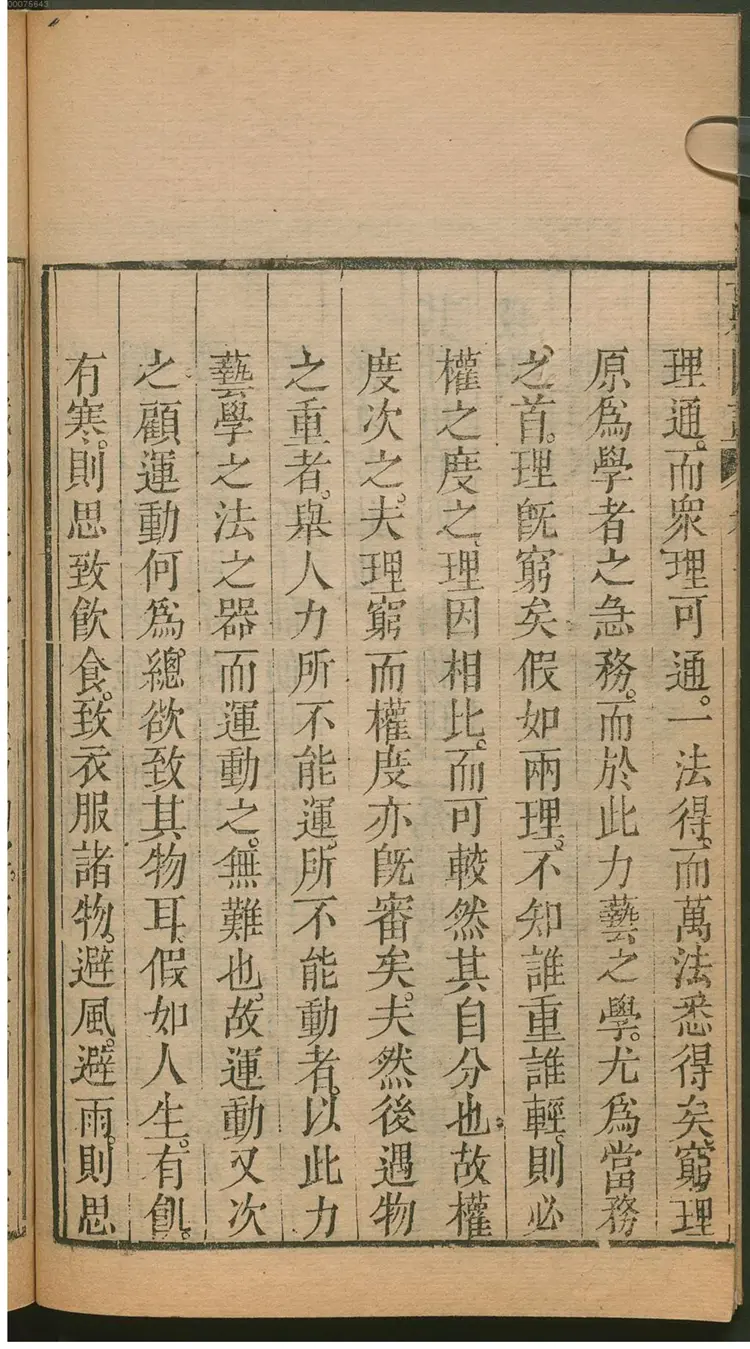 00075643
理通。而衆理可通。一法得。而萬法悉得矣。窮理
原爲學者之急務。而於此力藝之學。尤爲當務
之首。理旣窮矣假如兩理。不知誰重誰輕。則必
權之度之。理因相比。而可較然其自分也。故權
度次之。夫理窮而權度亦旣審矣。夫然後遇物
之重者。舉人力所不能運。所不能動者。以此力
藝學之法之器而運動之。無難也。故運動又次
之顧運動何爲。總欲致其物耳。假如人生。有飢。
有寒。則思致飮食。致衣服諸物。避風。避雨。則思